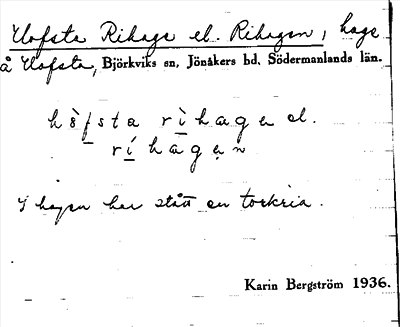 Hofsta Rihage el. Rihagen, hage
å Hofsta, Björkviks sn, Jönåkers hd. Södermanlands län.
hofsta rihage el.
rihagen
I hagen har stått en torkria.
Karin Bergström 1936.